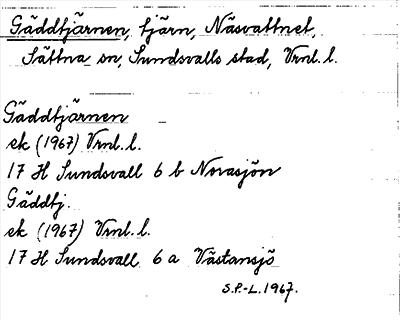 Gäddtjärnen, tjärn, Näsvattnet,
Sättna sn, Sundsvalls stad, Vrnl. l.
Gäddtjärnen
ek (1967) Vrnl. l.
17 H Sundsvall 6 b Novasjön
Gäddtj.
ek (1967) Vrnl. l.
17 H Sundsvall 6 a Västansjö
S.P.-L. 1967.